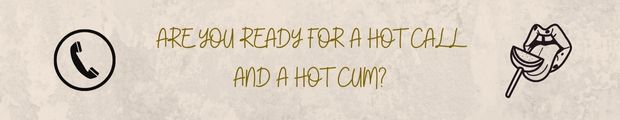 ARE YOU READY FOR A HOT CALL
AND A HOT CUM?